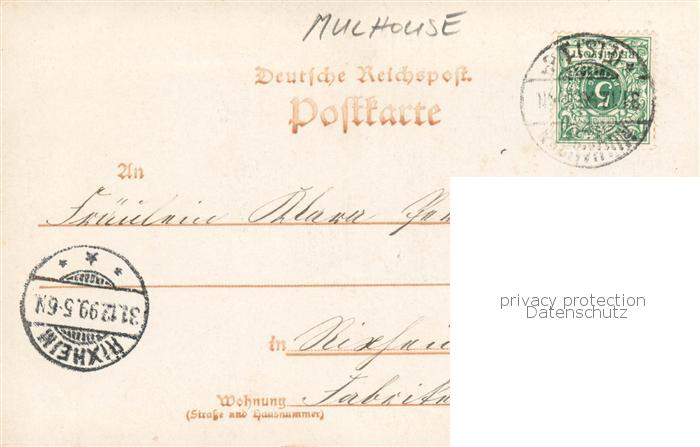 MULHOUSE
Deutsche Reichspost.
Postkarte
REICHSPOST
5
An
Fräulein Klara
RIXHEIM
31.12.99.5-6N.
in Rixheim
Wohnung
(Straße und Hausnummer)
privacy protection
Datenschutz